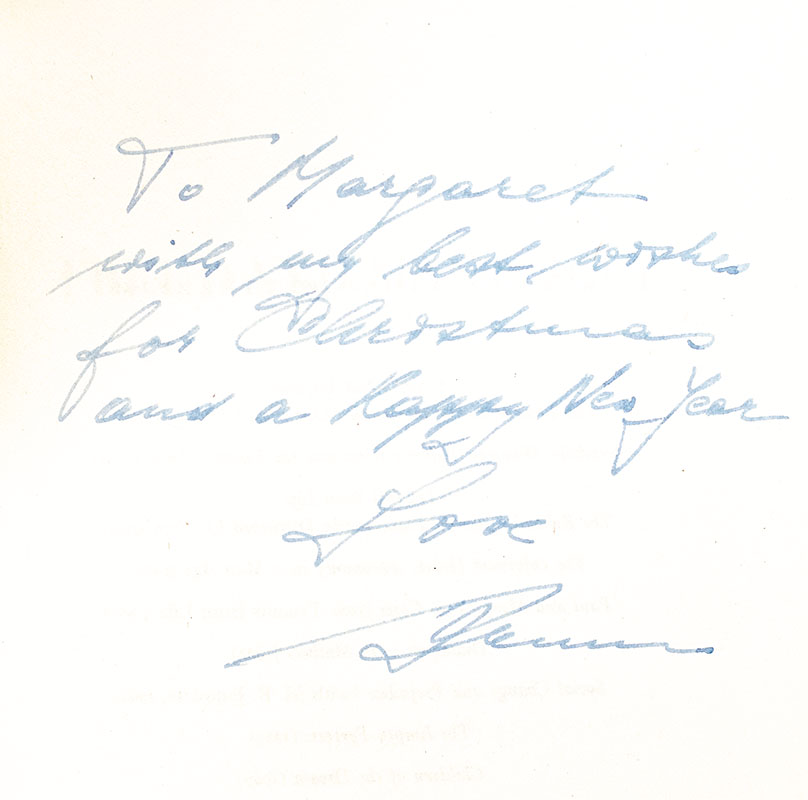 To Margaret
with my best wishes
for Christmas
and a Happy New Year
Love